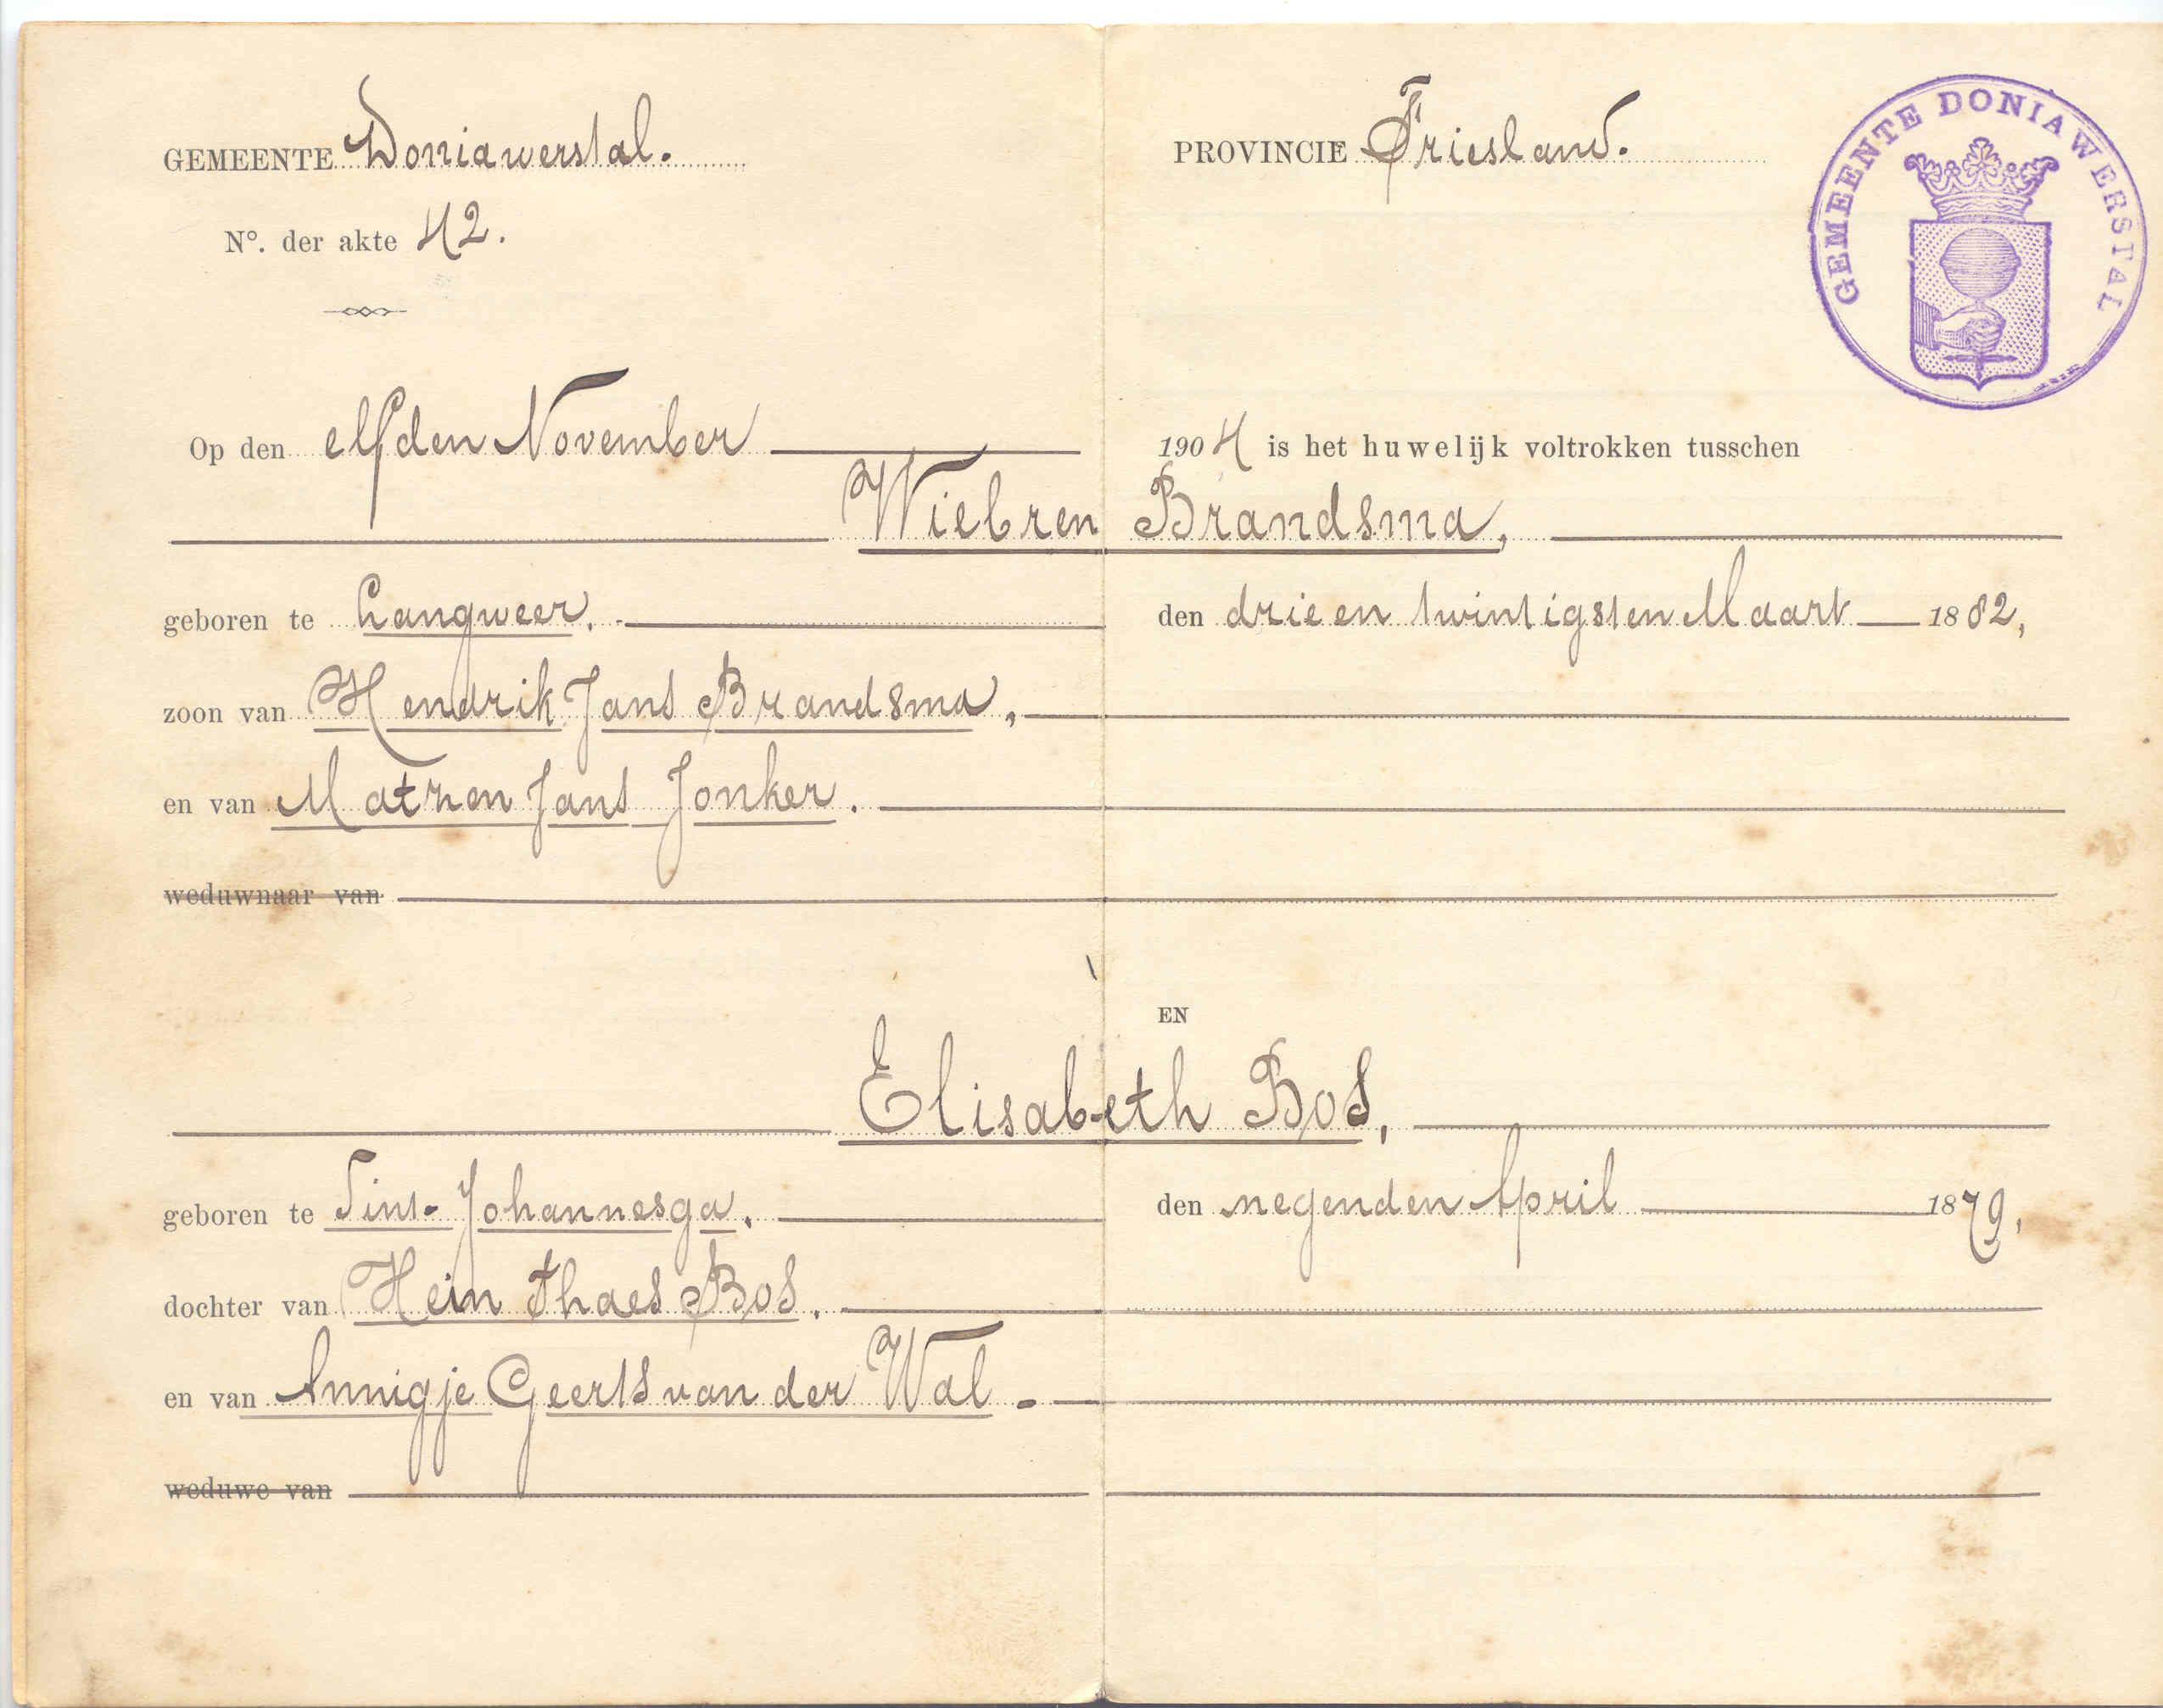 GEMEENTE Doniawerstal. PROVINCIE Friesland.
GEMEENTE DONIAWERSTAL
Nº. der akte 42.
Op den elfden November 1904 is het huwelijk voltrokken tusschen
Wiebren Brandsma,
geboren te Langweer. den drie en twintigsten Maart 1882,
zoon van Hendrik Jans Brandsma,
en van Matzen Jans Jonker.
weduwnaar van
EN
Elisabeth Bos,
geboren te Sint-Johannesga. den negenden April 1879,
dochter van Hein Thaes Bos.
en van Annigje Geerts van der Wal -
weduwe van